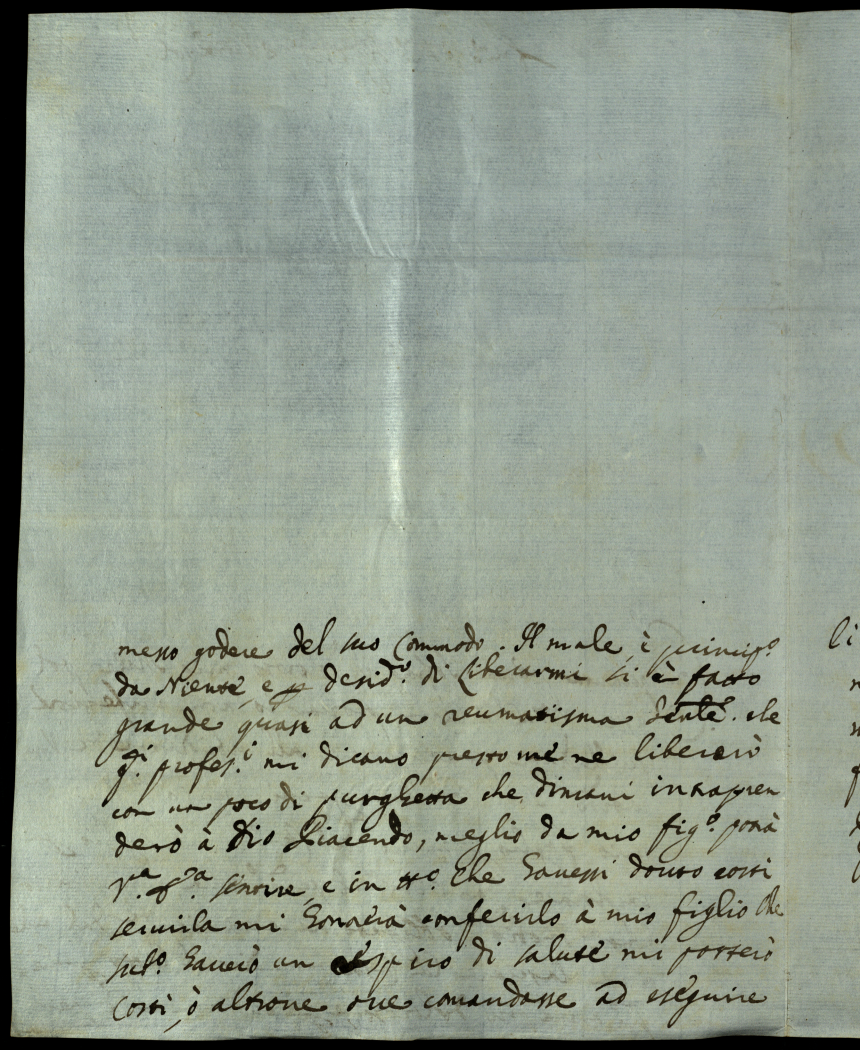 messo godere del suo Commodo. Il male è princip.o
da Niente, e p desid.o di liberarmi si è fatto
grande quasi ad un reumatisma che
q.i profes.i mi dicano presto me ne liberarò
con un poco di purghetta che dimani intrapren
derò à Dio Piacendo, meglio da mio fig.o potrà
V.a S.a sentire, e in tt.o che havessi douto costi
seruirla mi honorerà conferirlo à mio figlio che
sub.o hauerò un respiro di salute mi porterò
Costi, ò altroue oue comandasse ad eseguire
li